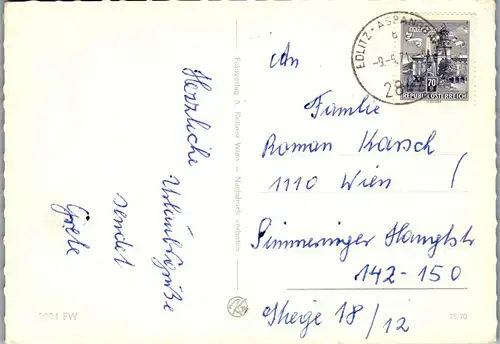 Herzliche
Urlaubsgrüße
sendet
Grete
Nachdruck verboten
EDLITZ-ASPANGBERG
b
-9.-6.7
28
70
REPUBLIK ÖSTERREICH
An
Familie
Roman Karsch
1110 Wien /
Simmeringer Hauptstr
142-150
Stiege 18/12
PW
15/70